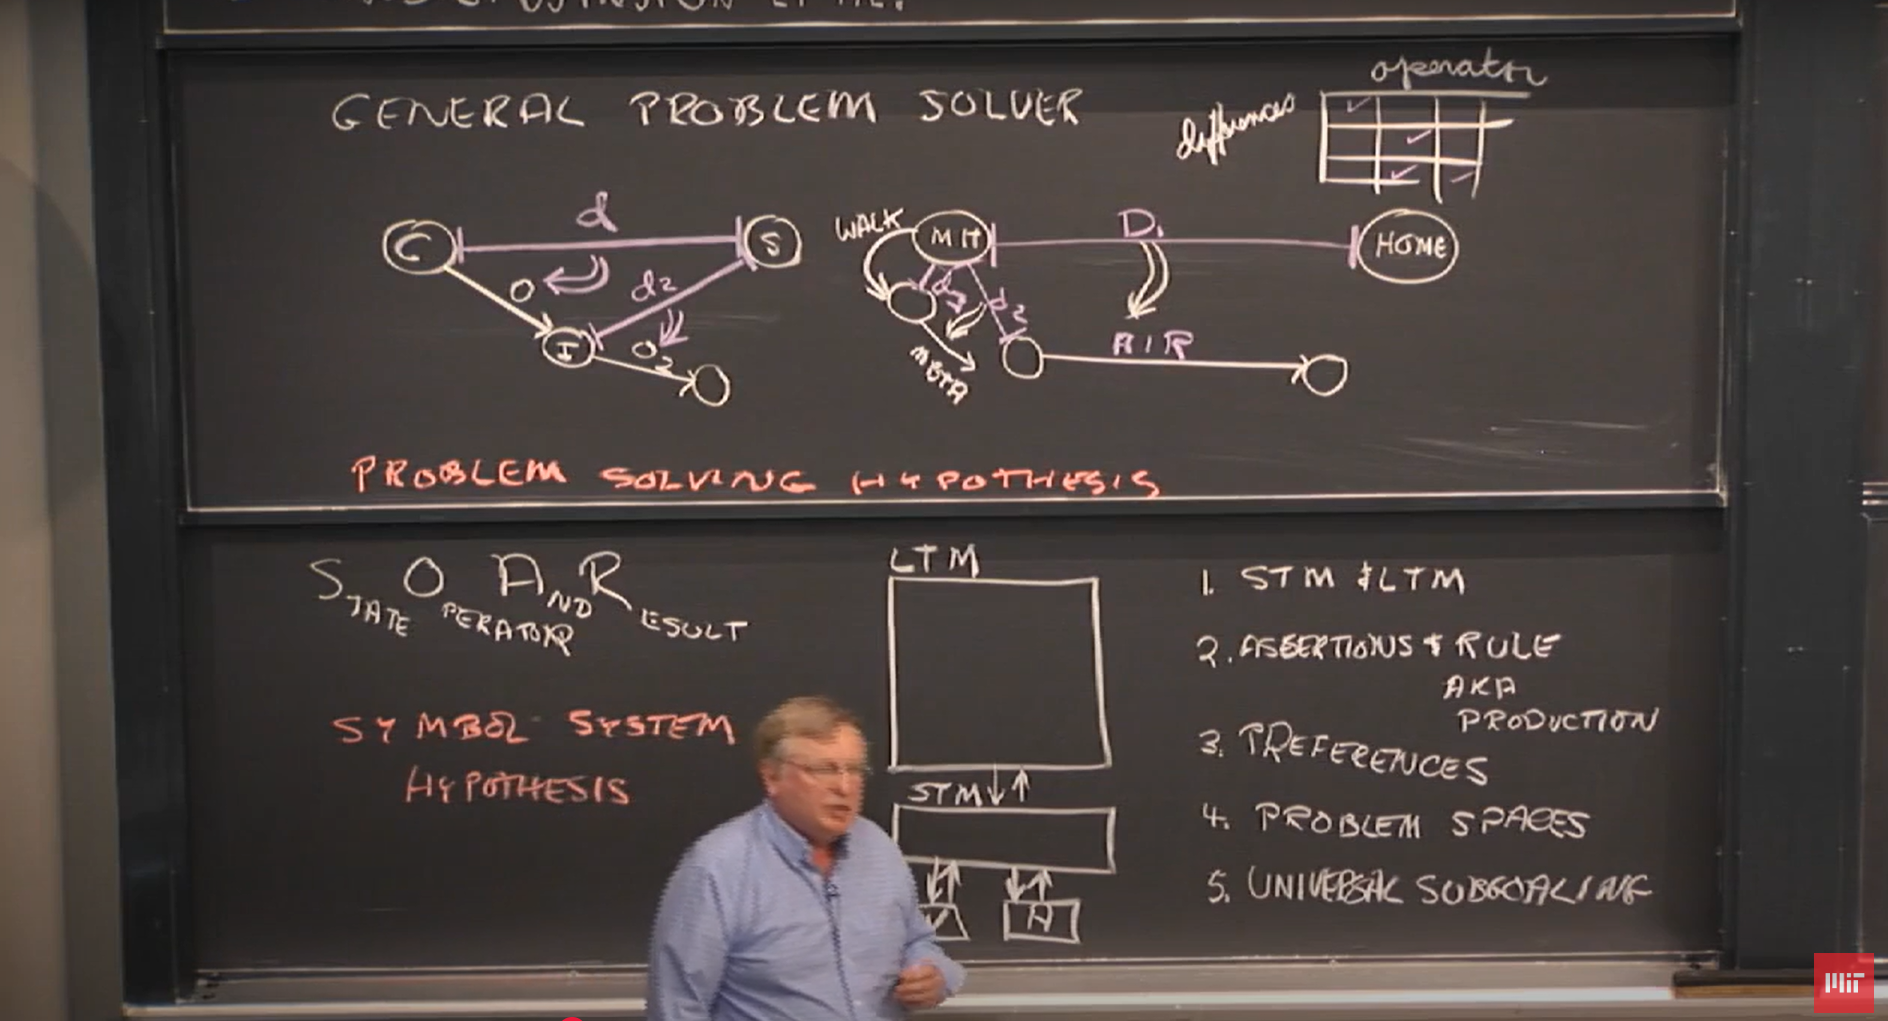 GENERAL PROBLEM SOLVER
operator
differences
C
d
S
O
d2
I
O2
WALK
MIT
D1
HOME
d3
d2
AIR
MBTA
PROBLEM SOLVING HYPOTHESIS
STATE OPERATOR AND RESULT
SYMBOL SYSTEM
HYPOTHESIS
LTM
STM
V
A
1. STM & LTM
2. ASSERTIONS & RULE
AKA
PRODUCTION
3. PREFERENCES
4. PROBLEM SPACES
5. UNIVERSAL SUBGOALING
MIT